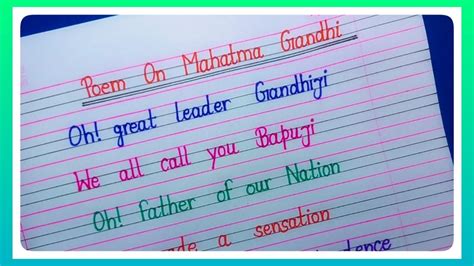 Poem On Mahatma Grandhi
Oh! great leader Grandhiji
We all call you Bapuji
Oh! father of our Nation
a sensation